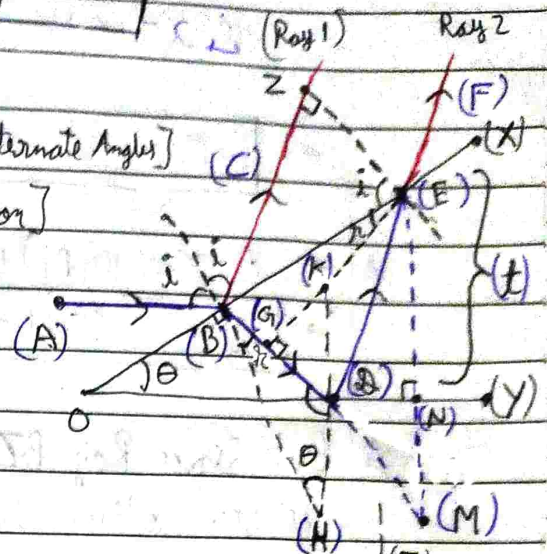 (Ray 1)
Ray 2
Z
(F)
ternate Angles]
(X)
(C)
on]
i
(E)
r
i
i
(K)
(t)
(A)
(B)
(G)
r
θ
(D)
O
(N)
(Y)
θ
(H)
(M)